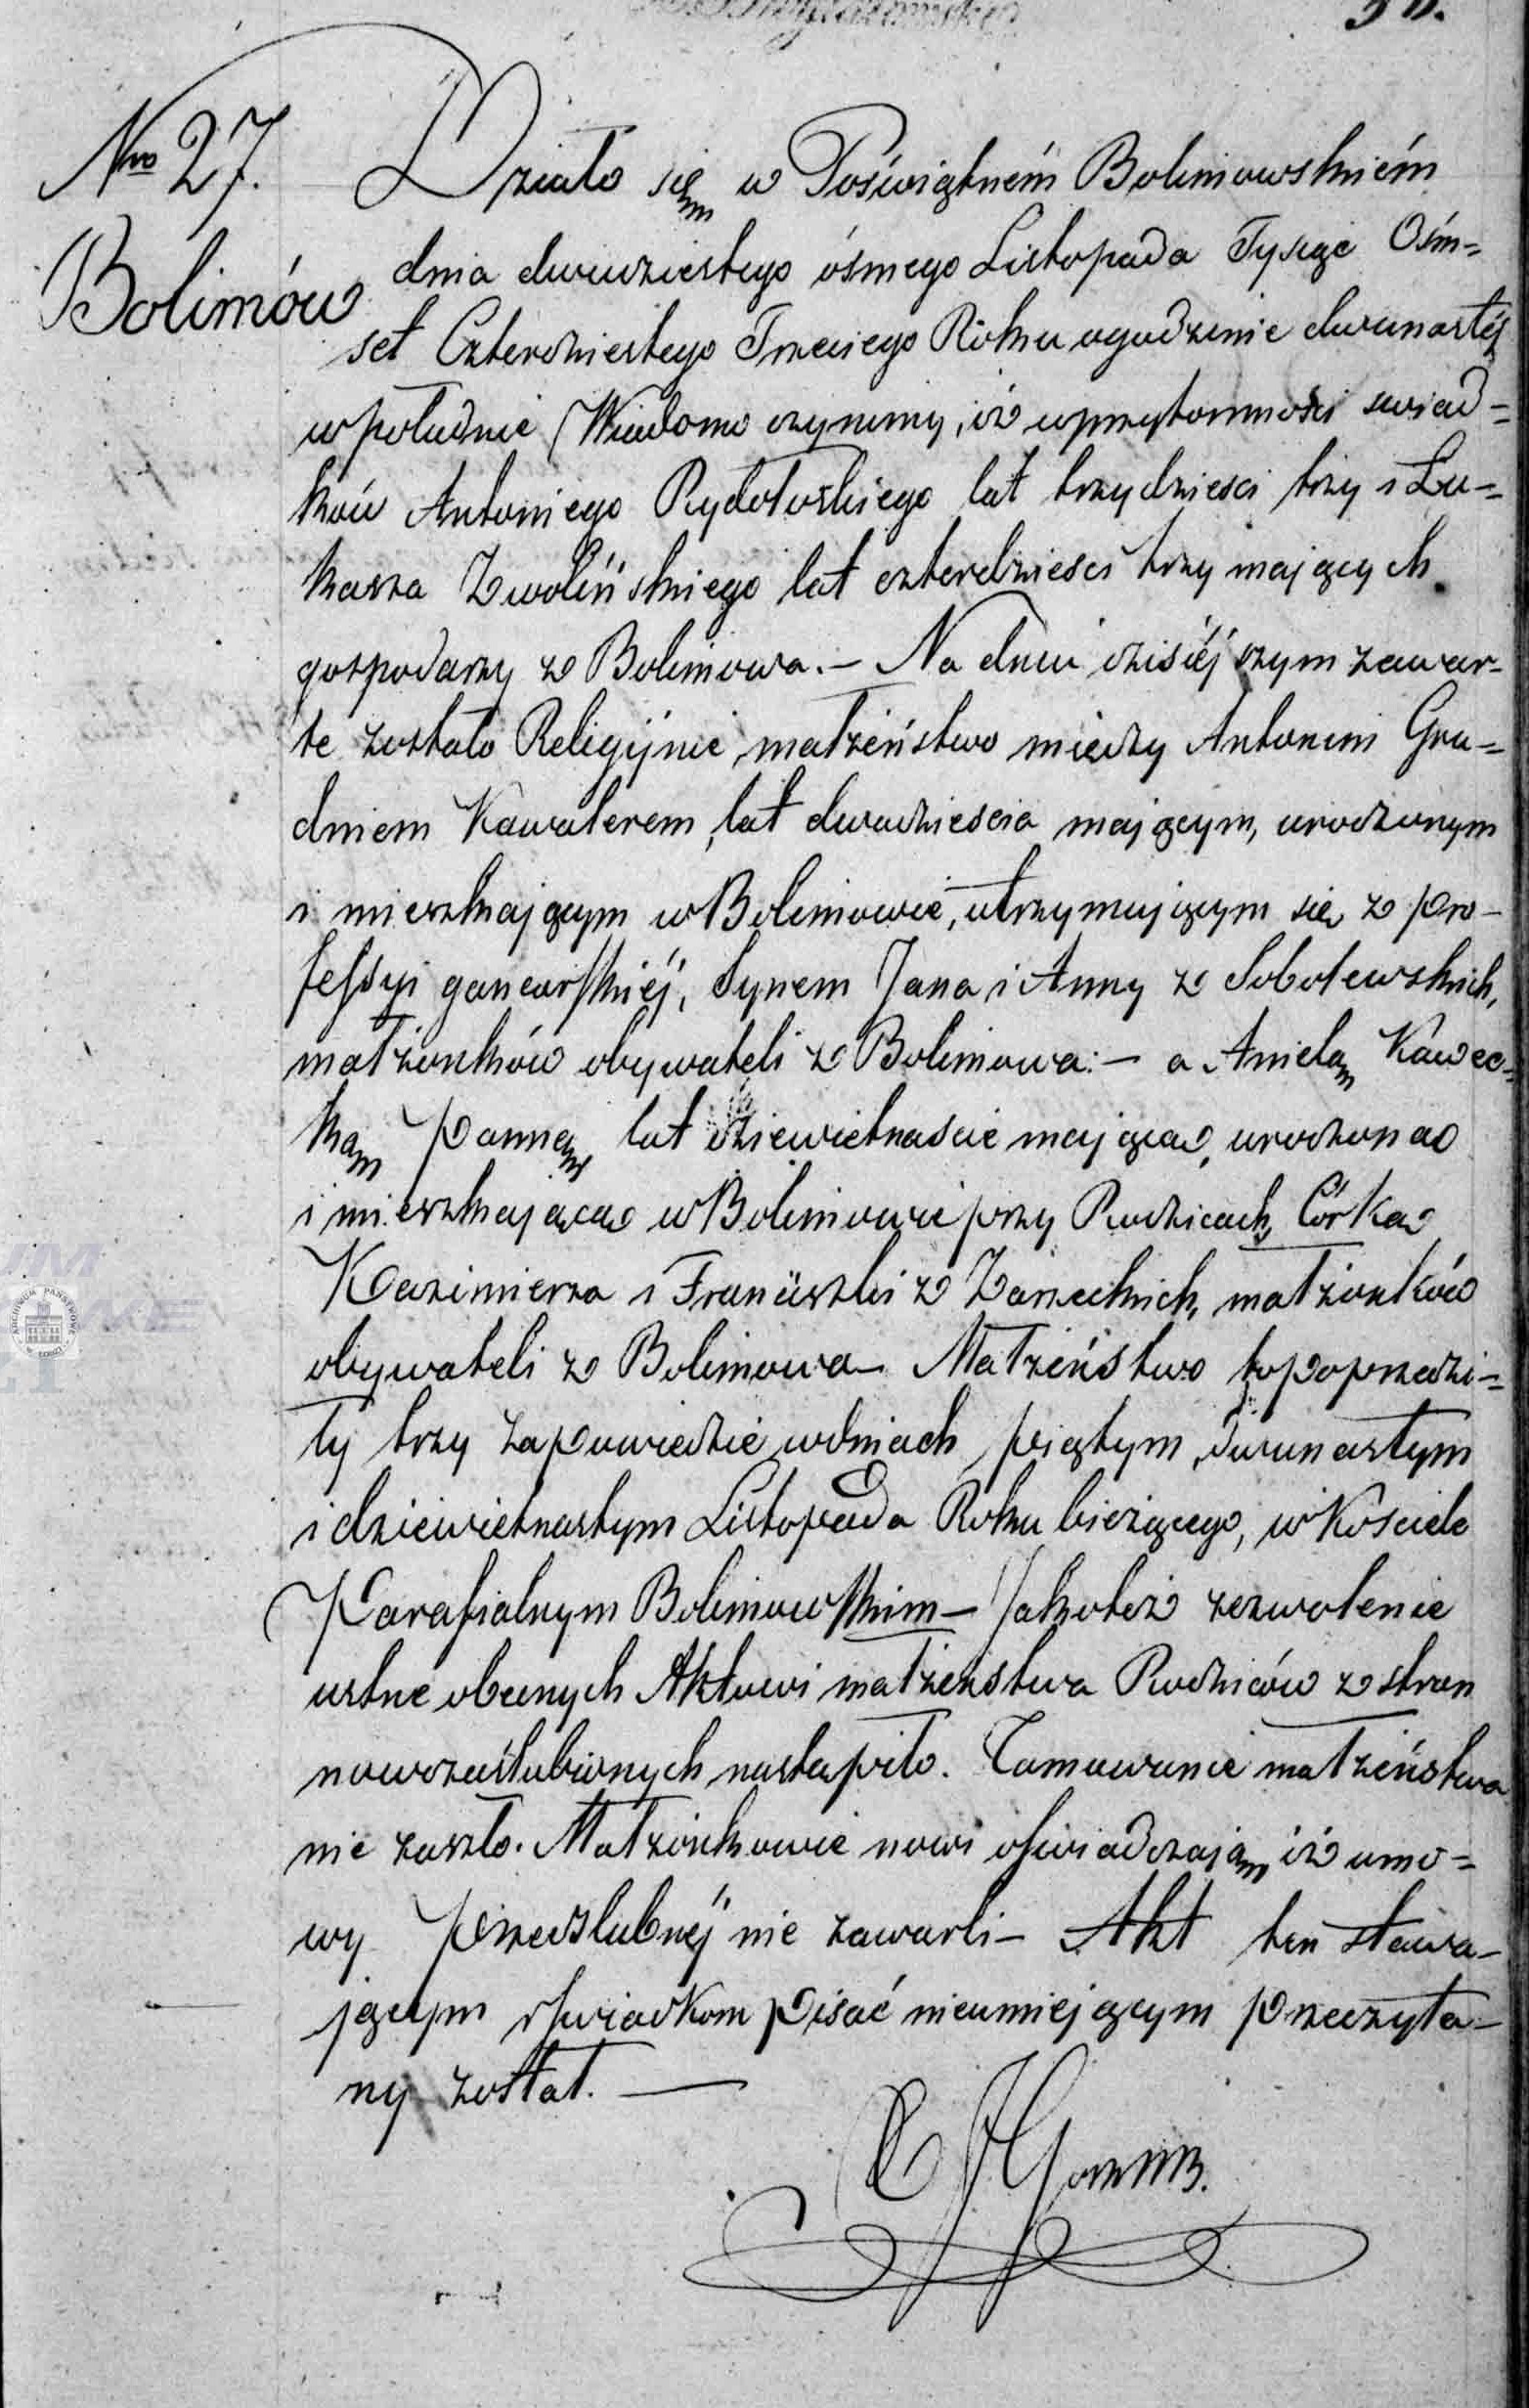 38.
Nro 27.
Bolimów
Działo się w Poświętném Bolimowskiém
dnia dwudziestego ósmego Listopada Tysąc Ośm=
set Czterdziestego Trzeciego Roku o godzinie dwunastéj
w południe Wiadomo czynimy, iż w przytomności swiad=
ków Antoniego Rydoloskiego lat trzydziesci trzy i Łu=
kasza Zwolińskiego lat czterdziesci trzy mających
gospodarzy z Bolimowa. – Na dniu dzisiéjszym zawar-
te zostało Religijnie małżeństwo między Antonim Gru=
dniem Kawalerem, lat dwadziescia mającym, urodzonym
i mieszkającym w Bolimowie, utrzymującym się z pro-
fessyi garncarskiéj, Synem Jana i Anny z Sobolewskich,
małżonków obywateli z Bolimowa: – a Anielą Kawec=
ką Panną lat dziewietnascie mającą, urodzoną
i mieszkającą w Bolimowie przy Rodzicach, Córką
Kazimierza i Franciszki z Zarzeckich, małżonków
obywateli z Bolimowa – Małżeństwo to poprzedzi=
ły trzy zapowiedzie w dniach piątym, dwunastym
i dziewietnastym Listopada Roku bieżącego, w Kosciele
Parafialnym Bolimowskim – Jakoteż zezwolenie
ustne obecnych Aktowi małżeństwa Rodziców z stron
nowozaślubionych nastąpiło. Tamowanie małżeństwa
nie zaszło. Małżonkowie nowi oświadczają iż umo=
wy przedślubnéj nie zawarli – Akt ten stawa-
jącym i świadkom pisać nieumiejącym przeczyta-
ny został. —
ARCHIWUM PAŃSTWOWE W ŁODZI